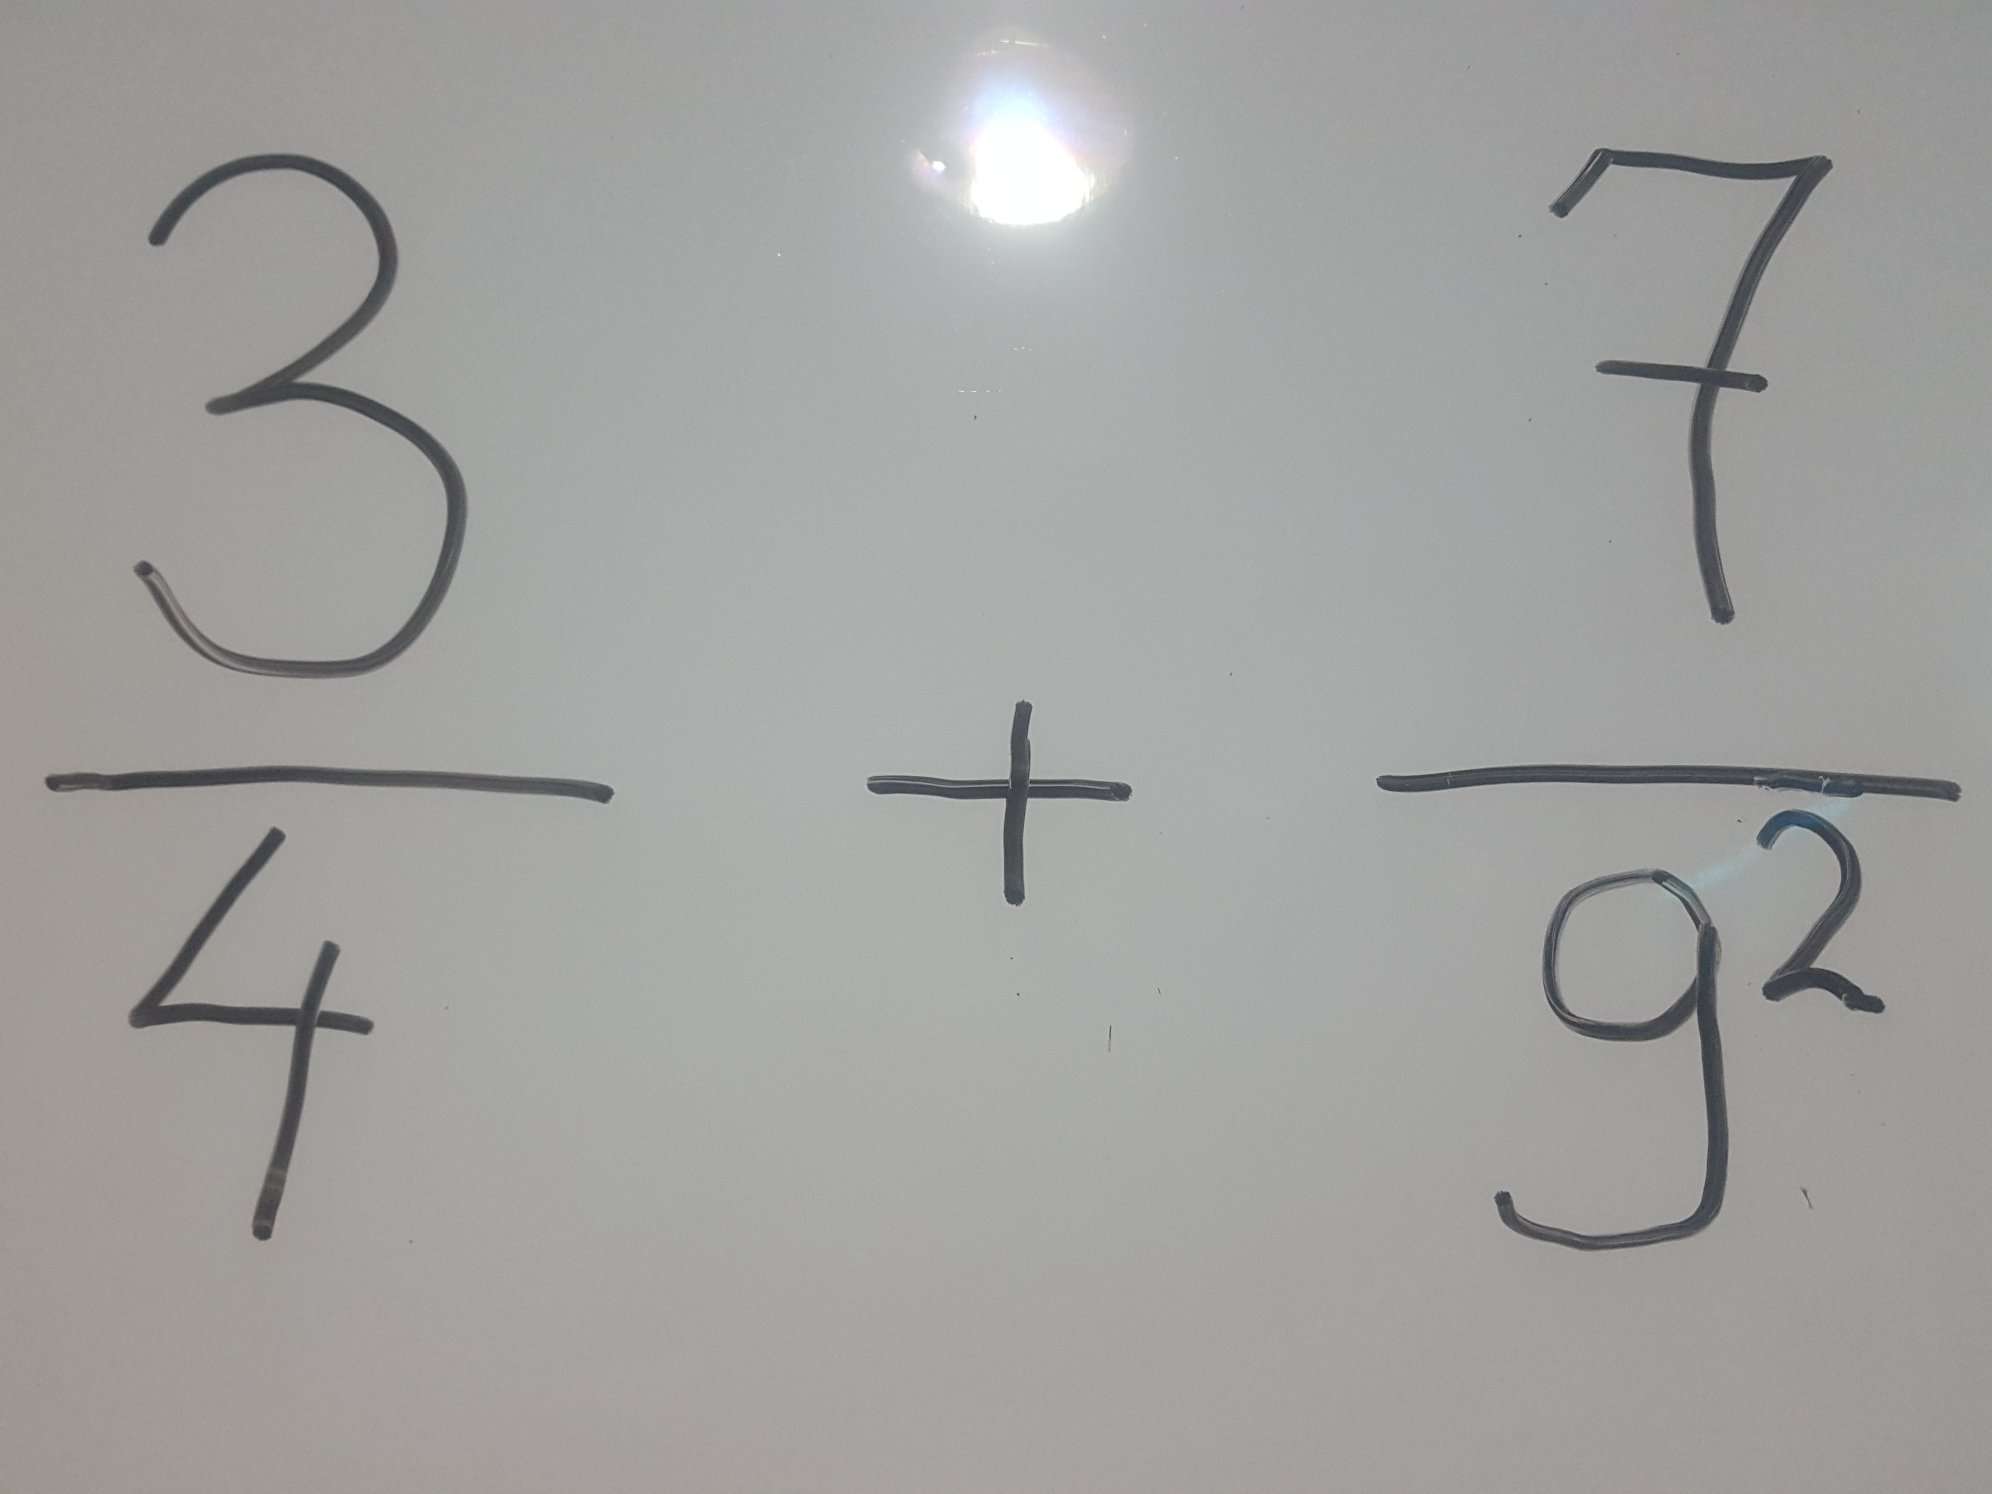 3/4 + 7/9²